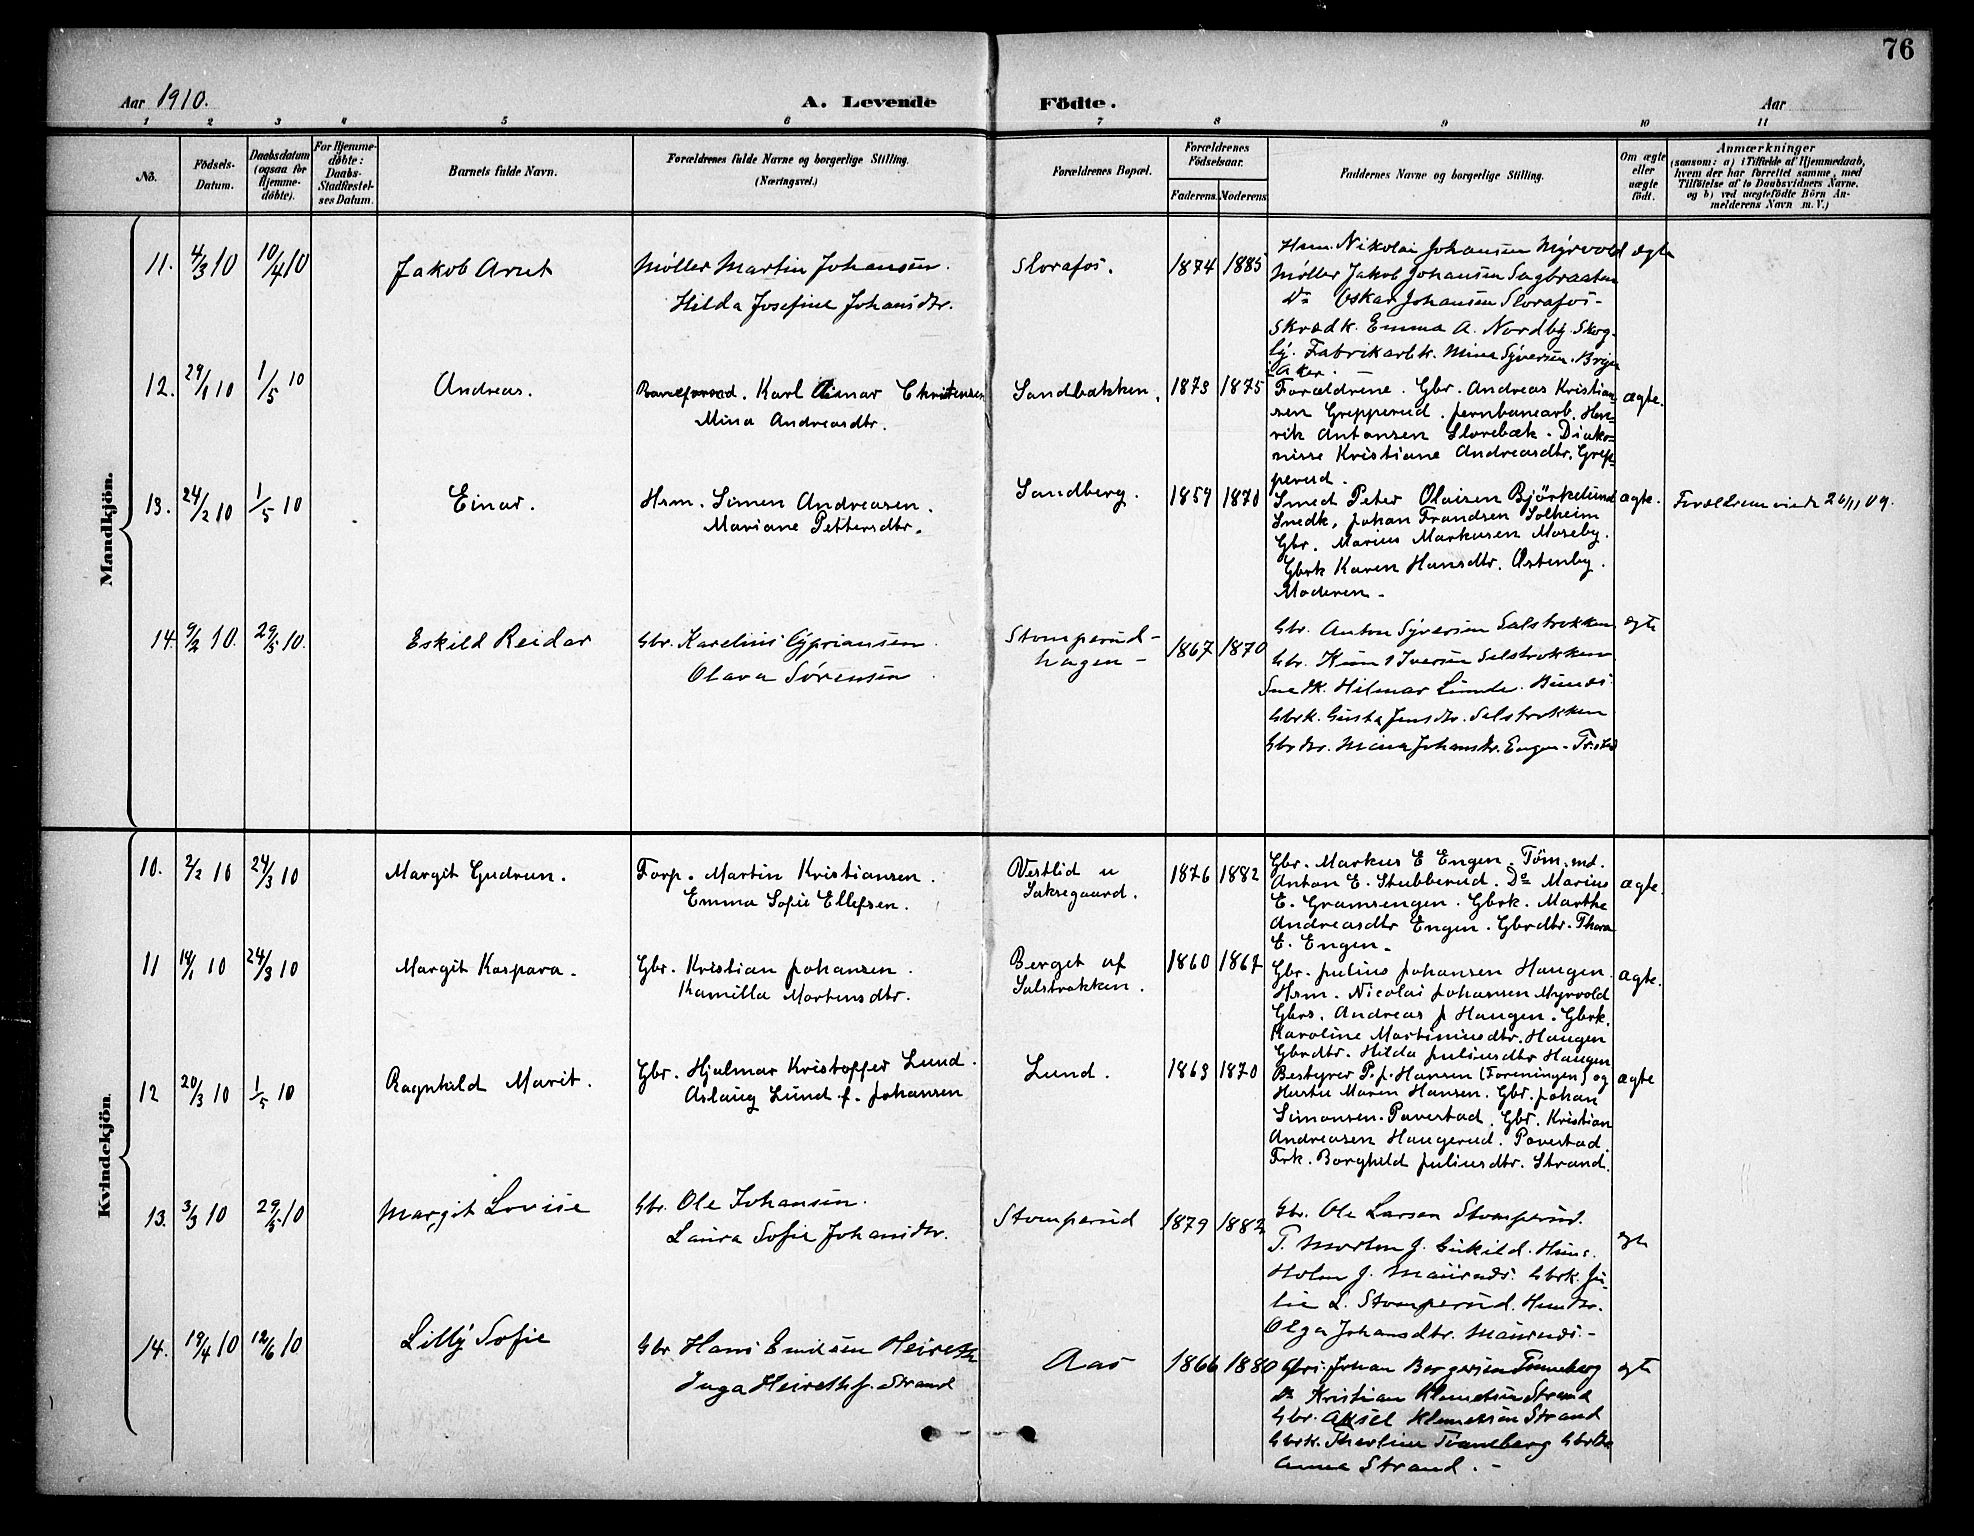 76
Aar 1910.
A. Levende Födte.
Aar
1 2 3 4 5 6 7 8 9 10 11
No.
Födsels-Datum.
Daabsdatum (ogsaa for Hjemme-döbte).
For Hjemme-döbte: Daabs-Stadfæstel-ses Datum.
Barnets fulde Navn.
Forældrenes fulde Navne og borgerlige Stilling.
(Næringsvei.)
Forældrenes Bopæl.
Forældrenes Födselsaar.
Faderens. Moderens.
Faddernes Navne og borgerlige Stilling.
Om ægte eller uægte födt.
Anmærkninger
(saasom: a) i Tilfælde af Hjemmedaab,
hvem der har forrettet samme, med
Tilföielse af to Daabsvidners Navne.
og b) ved uægtefödte Börn An-
melderens Navn m. V.)
Mandkjön.
11. 4/3 10 10/4 10 Jakob Arnt
Møller Martin Johansen.
Hilda Josefine Johansdtr.
Slorafos. 1874 1885
Hsm. Nikolai Johansen Myrvold
Møller Jakob Johansen Sagbraaten
Do Oskar Johansen Slorafos-
Skrædk. Emma A. Nordby. Skog-
by. Fabrikarbk. Mina Syversen.
Aker.
ægte
12. 29/1 10 1/5 10 Andreas.
Karl Einar Christensen
Mina Andreasdtr.
Sandbakken. 1873 1875
Forældrene. Gbr. Andreas Kristian-
sen Grepperud. jernbanearb. Hen-
rik Antonsen Slorebæk. Diako-
nisse Kristiane Andreasdtr. Grep-
perud.
ægte.
13. 24/2 10 1/5 10 Einar.
Hsm. Simen Andreasen.
Mariane Pettersdtr.
Sandberg. 1859 1870
Smed Peter Olaisen Bjørkelund
Snedk. Johan Frandsen Solheim
Gbr. Marius Markusen Moseby.
Gbrk Karen Hansdtr. Østenby.
Moderen.
ægte.
Forældrene viede 26/11 09.
14. 9/2 10. 29/5 10. Eskild Reidar
Gbr. Karelius Cypriansen
Olava Sørensen
Stomperud-
hagen- 1867 1870
Gbr. Anton Syversen Salstrokken
Gbr. Knut Iversen Salstrokken
Snedk. Hilmar Linde.
Gbrk. Gusta Jensdtr. Salstrokken
Gbrdtr. Mina Johansdtr. Engen-
ægte
Kvindekjön.
10. 2/2 10 24/3 10 Margit Gudrun.
Forp. Martin Kristiansen.
Emma Sofie Ellefsen.
Vestlid u
Saksegaard. 1876 1882
Gbr. Markus E Engen. Töm.md.
Anton E. Stubberud. Do Marius
E. Gramsengen. Gbrk. Marthe
Andreasdtr Engen. Gbrdtr. Thora
E. Engen.
ægte.
11 14/1 10 24/3 10 Margit Kaspara.
Gbr. Kristian Johansen.
Kamilla Mortensdtr.
Berget af
Salstrokken. 1860 1867
Gbr. Julius Johansen Haugen.
Hsm. Nicolai Johansen Myrvold
Gbrs. Andreas J Haugen. Gbrk.
Karoline Martiniusdtr. Haugen
Gbrdtr. Hilda Juliusdtr Haugen
ægte.
12 20/3 10 1/5 10 Ragnhild Marit.
Gbr. Hjalmar Kristoffer Lund.
Aslaug Lund f. Johansen
Lund. 1863 1870
Bestyrer P. J. Hansen (Foreningen) og
Hustru Maren Hansen. Gbr. Johan
Simonsen. Paverstad. Gbr. Kristian
Andreasen Haugerud. Paverstad.
Frk. Borghild Juliusdtr. Strand.
ægte
13. 3/3 10 29/5 10 Margit Lovise
Gbr. Ole Johansen.
Laura Sofie Johansdtr.
Stomperud 1879 1882
Gbr. Ole Larsen Stomperud.
T. Morten J. Hsms.
Holm J. Gbrk. Ju-
lie L. Stomperud.
Olga Johansdtr.
ægte
14. 19/4 10 12/6 10 Lilly Sofie
Gbr Hans Emilsen Heireth
Inga Heireth f. Strand
Aas 1866 1880
Gbr. Johan Borgersen Tanneberg
Do Kristian Klemetsen Strand
Gbr. Aksel Klemetsen Strand
Gbrk. Tanneberg Gbrdtr
Anna Strand.
ægte